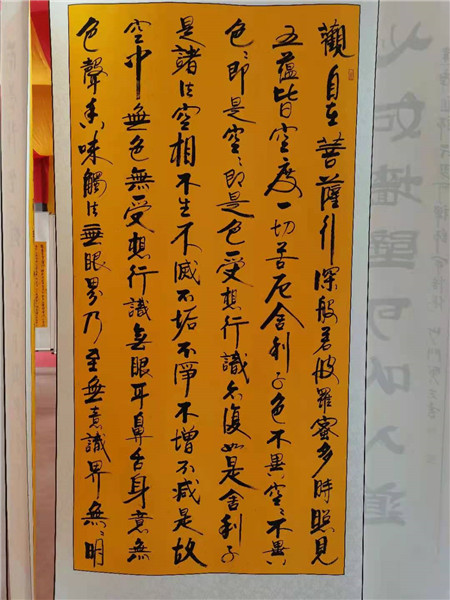 心如墙壁可以入道
觀自在菩薩行深般若波羅蜜多時照見
五蘊皆空度一切苦厄舍利子色不異空〻不異
色〻即是空〻即是色受想行識亦復如是舍利子
是諸法空相不生不滅不垢不淨不增不減是故
空中無色無受想行識無眼耳鼻舌身意無
色聲香味觸法無眼界乃至無意識界無〻明